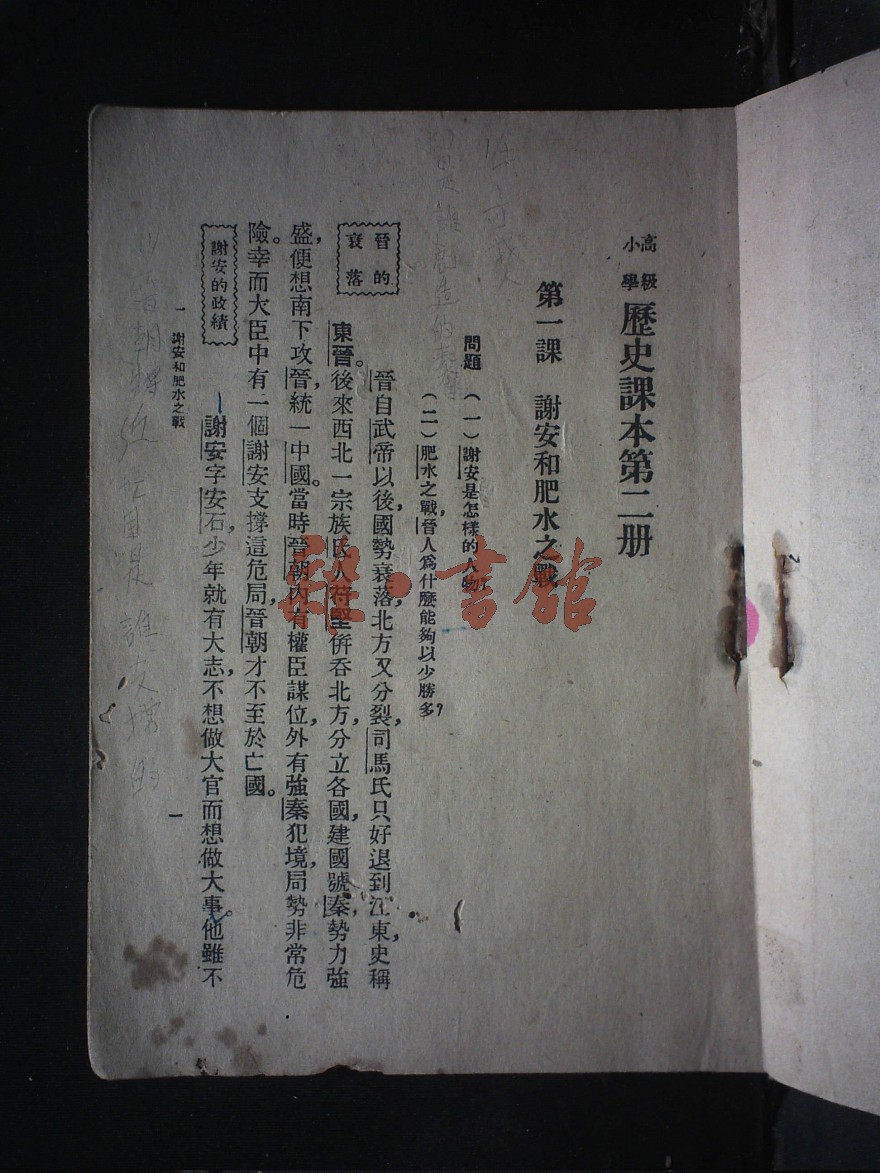 高級
小學
歷史課本第二册
第一課　謝安和肥水之戰
問題　（一）謝安是怎樣的人物？
（二）肥水之戰，晉人爲什麼能夠以少勝多？
晉的
衰落
晉自武帝以後，國勢衰落，北方又分裂，司馬氏只好退到江東，史稱
東晉。後來西北一宗族氏人苻堅，倂吞北方分立各國，建國號秦，勢力強
盛，便想南下攻晉，統一中國。當時晉朝內有權臣謀位，外有強秦犯境，局勢非常危
險。幸而大臣中有一個謝安支撐這危局，晉朝才不至於亡國。
謝安的政績
謝安字安石，少年就有大志，不想做大官而想做大事。他雖不
一　謝安和肥水之戰
一
雜·書館
是誰創造的